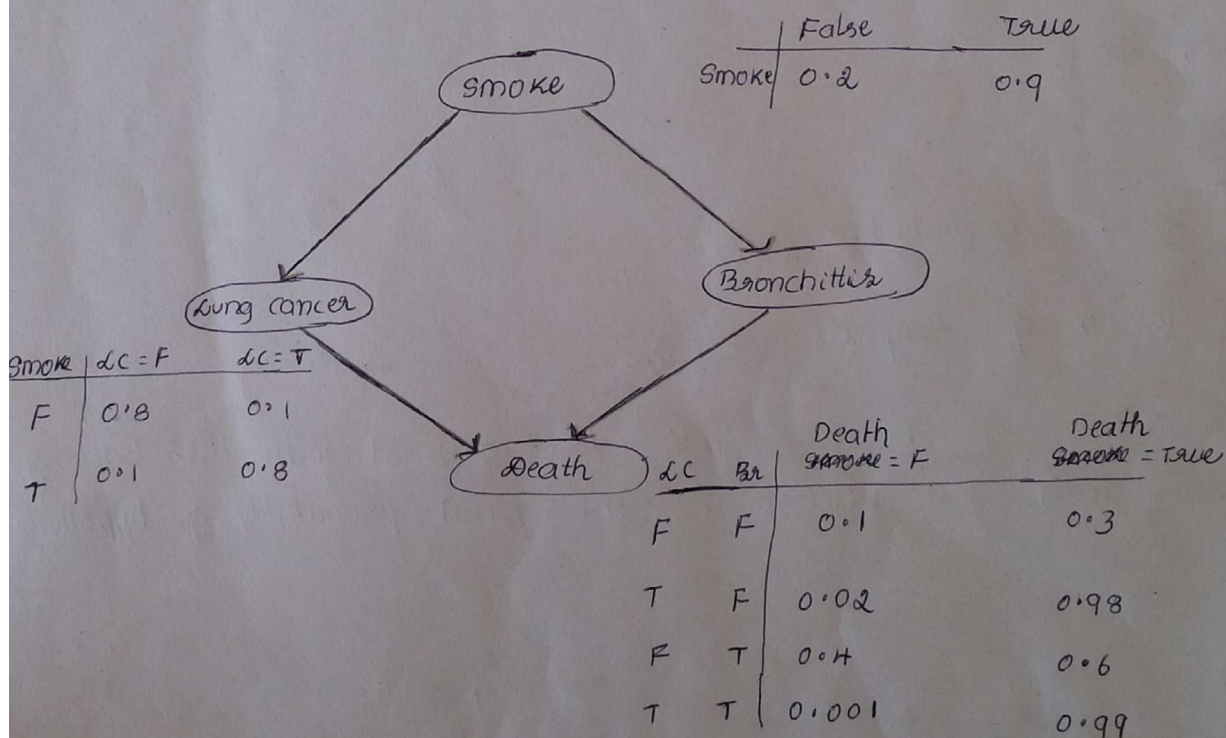 False True
Smoke 0.2 0.9
Smoke
Lung cancer
Bronchittis
Smoke LC = F LC = T
F 0.8 0.1
T 0.1 0.8
Death
LC Br Death = F Death = True
F F 0.1 0.3
T F 0.02 0.98
F T 0.4 0.6
T T 0.001 0.99